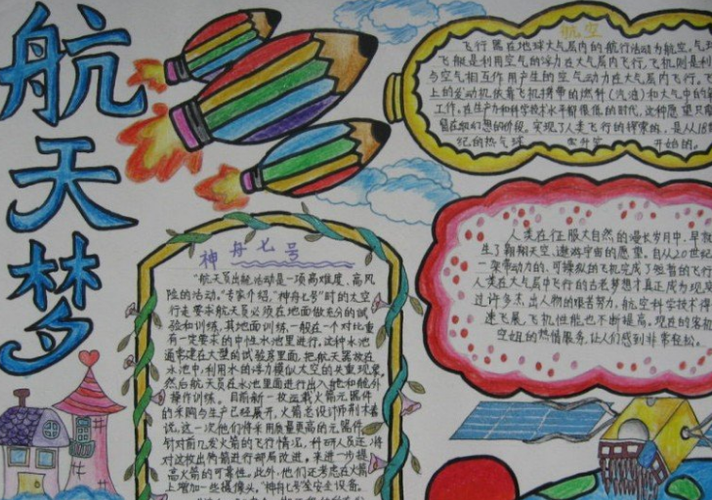 航天梦
航空
飞行器在地球大气层内的航行活动为航空。气球
飞艇是利用空气的浮力在大气层内飞行,飞机则是利
与空气相互作用产生的空气动力在大气层内飞行。飞
上的发动机依靠飞机携带的燃料(汽油)和大气中的
工作。在生产力和科学技术水平都很低的时代,这种愿望只
留在 幻想的阶段。实现了人走飞行的 的,是从18
纪的热气球 升空 开始的。
人类在征服大自然的漫长岁月中,早
生了翱翔天空、遨游宇宙的愿望。自从20世纪
一架带动力的、可操纵的飞机完成了短暂的飞行
人类在大气层中飞行的古老梦想才真正成为现
过许多杰出人物的艰苦努力,航空科学技术得
速飞展,飞机性能也不断提高。现在的客机
空姐的热情服务,让人们感到非常轻松。
神舟七号
“航天员出舱活动是一项高难度、高风
险的活动。”专家介绍,“神舟七号”时的太空
行走要求航天员必须在地面做充分的试
验和训练,其地面训练一般在一个对比重
有一定要求的中性水池里进行。这种水池
通常建在大型的试验房里面,把航天器放在
水池中,利用水的浮力模似太空的失重现象,
然后航天员在水池里面进行出入舱和舱外
操作训练。目前新一枚运载火箭元器件
的采购与生产已经展开,火箭总设计师荆木春
说,这一次他们将采用质量更高的元器件。
针对前几发火箭的飞行情况,科研人员还将
对这枚出阵箭进行部局改进,来进一步提
高火箭的可靠性。此外,他们还考志在火箭
上增加一些摄像头,“神舟七号”等安全设备。